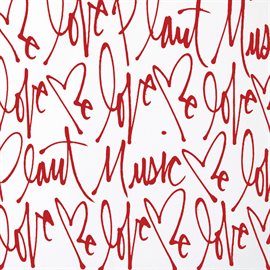 Me love Plant Music
love Me love Me love
Plant Music Me
love Me love Me love